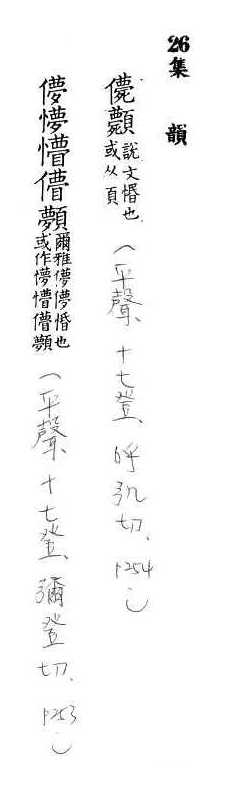 26集 韻
儚顭說文惛也或从頁(平聲、十七登、呼弘切、P254)
儚懜懵儯顭爾雅儚儚惛也或作懜懵儯顭(平聲、十七登、彌登切、P253)